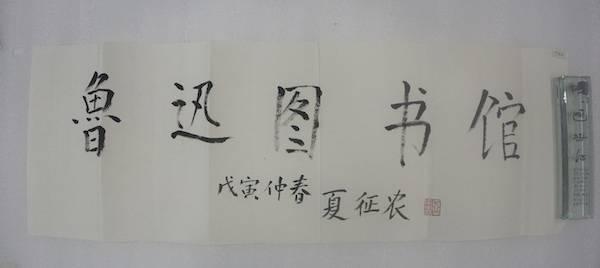 鲁迅图书馆
戊寅仲春
夏征农